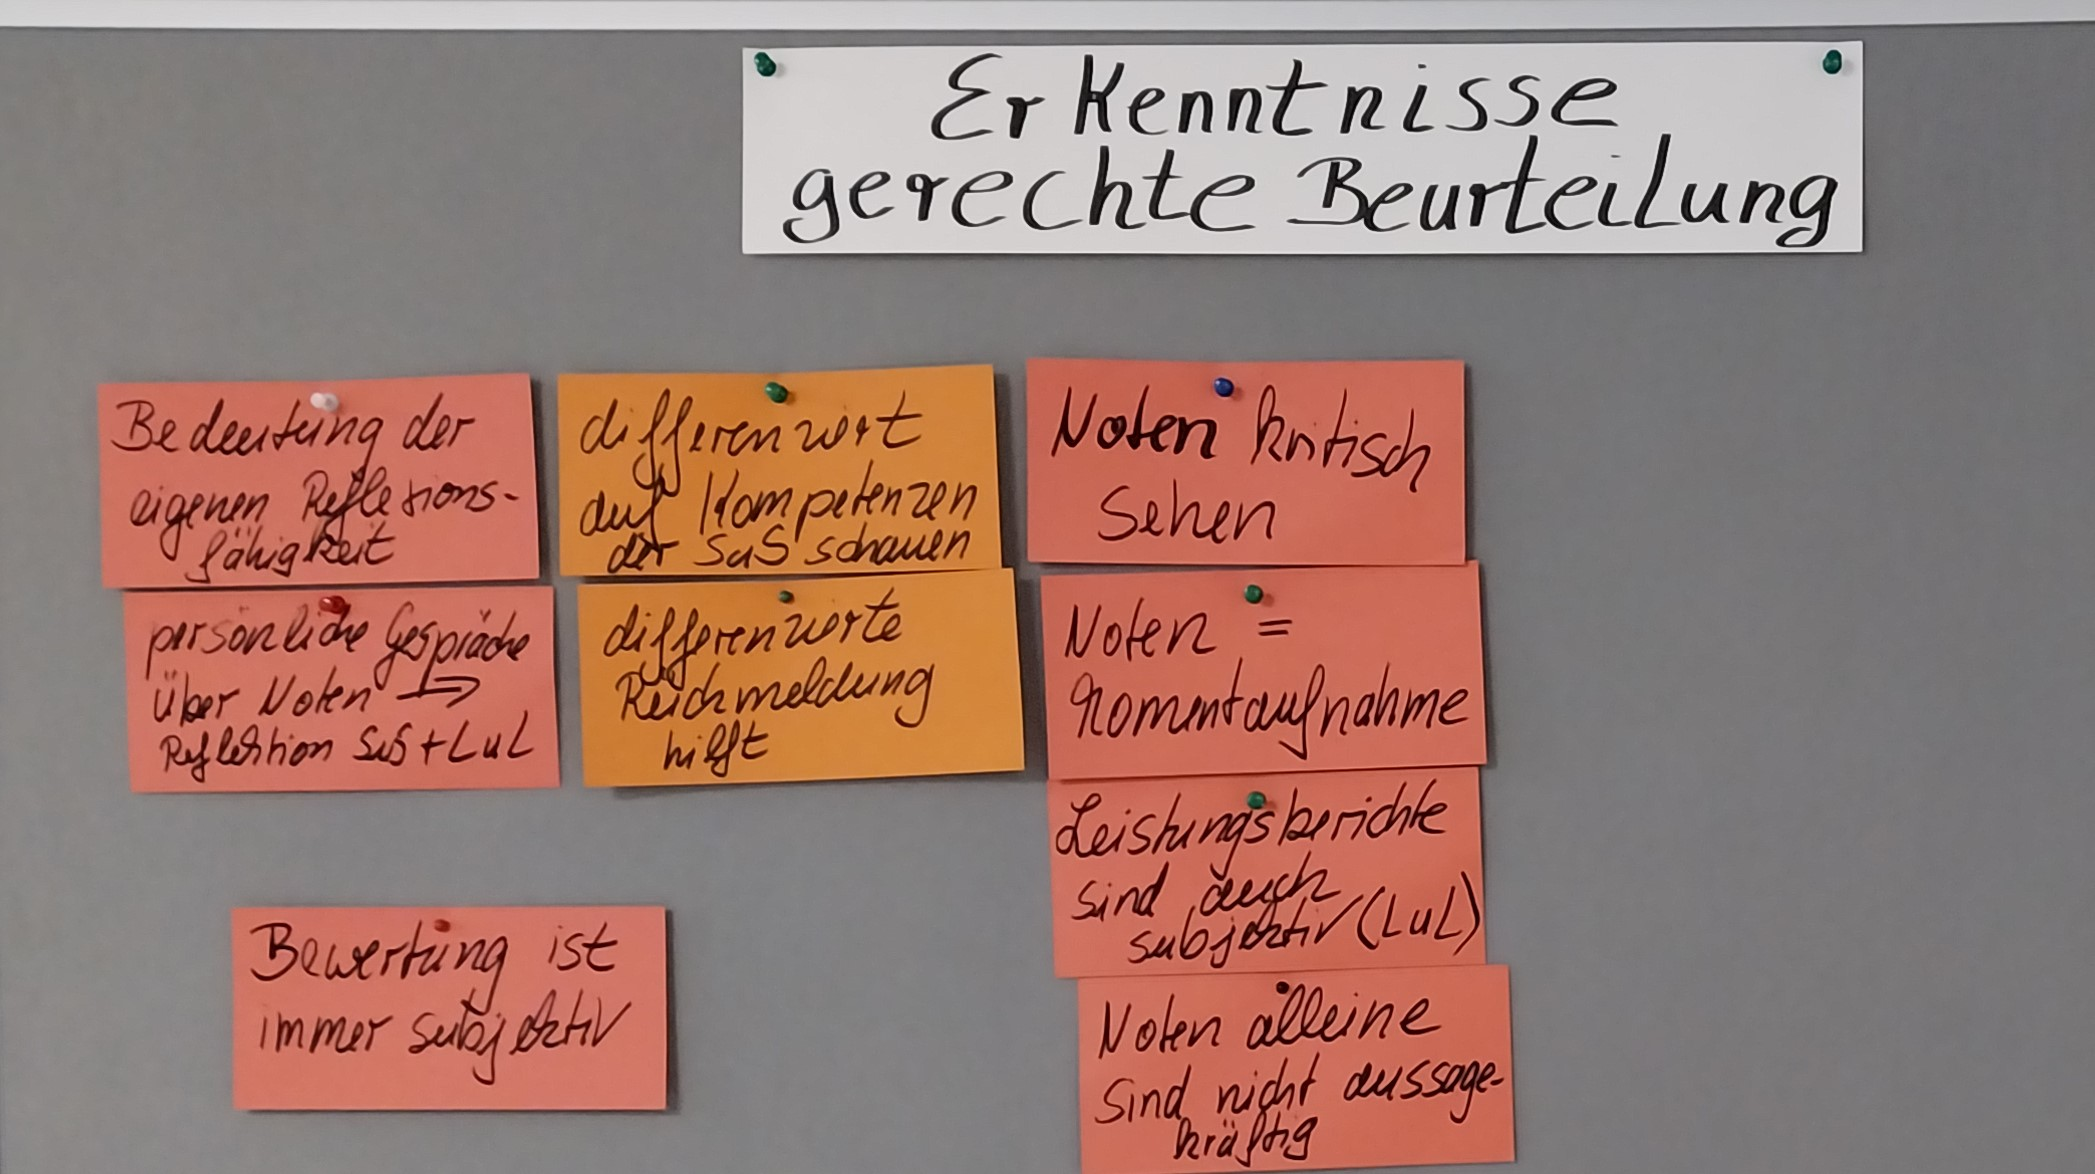 Erkenntnisse
gerechte Beurteilung
Bedeutung der
eigenen Reflexions-
fähigkeit
persönliche Gespräche
über Noten →
Reflektion SuS + LuL
Bewertung ist
immer subjektiv
differenziert
auf Kompetenzen
der SuS schauen
differenzierte
Rückmeldung
hilft
Noten kritisch
sehen
Noten =
Momentaufnahme
Leistungsberichte
sind auch
subjektiv (LuL)
Noten alleine
sind nicht aussage-
kräftig